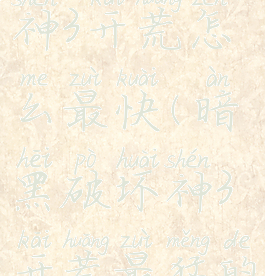 神3开荒怎
me zuì kuài àn
么最快(暗
hēi pò huài shén
黑破坏神3
kāi huāng zuì měng de
开荒最猛的